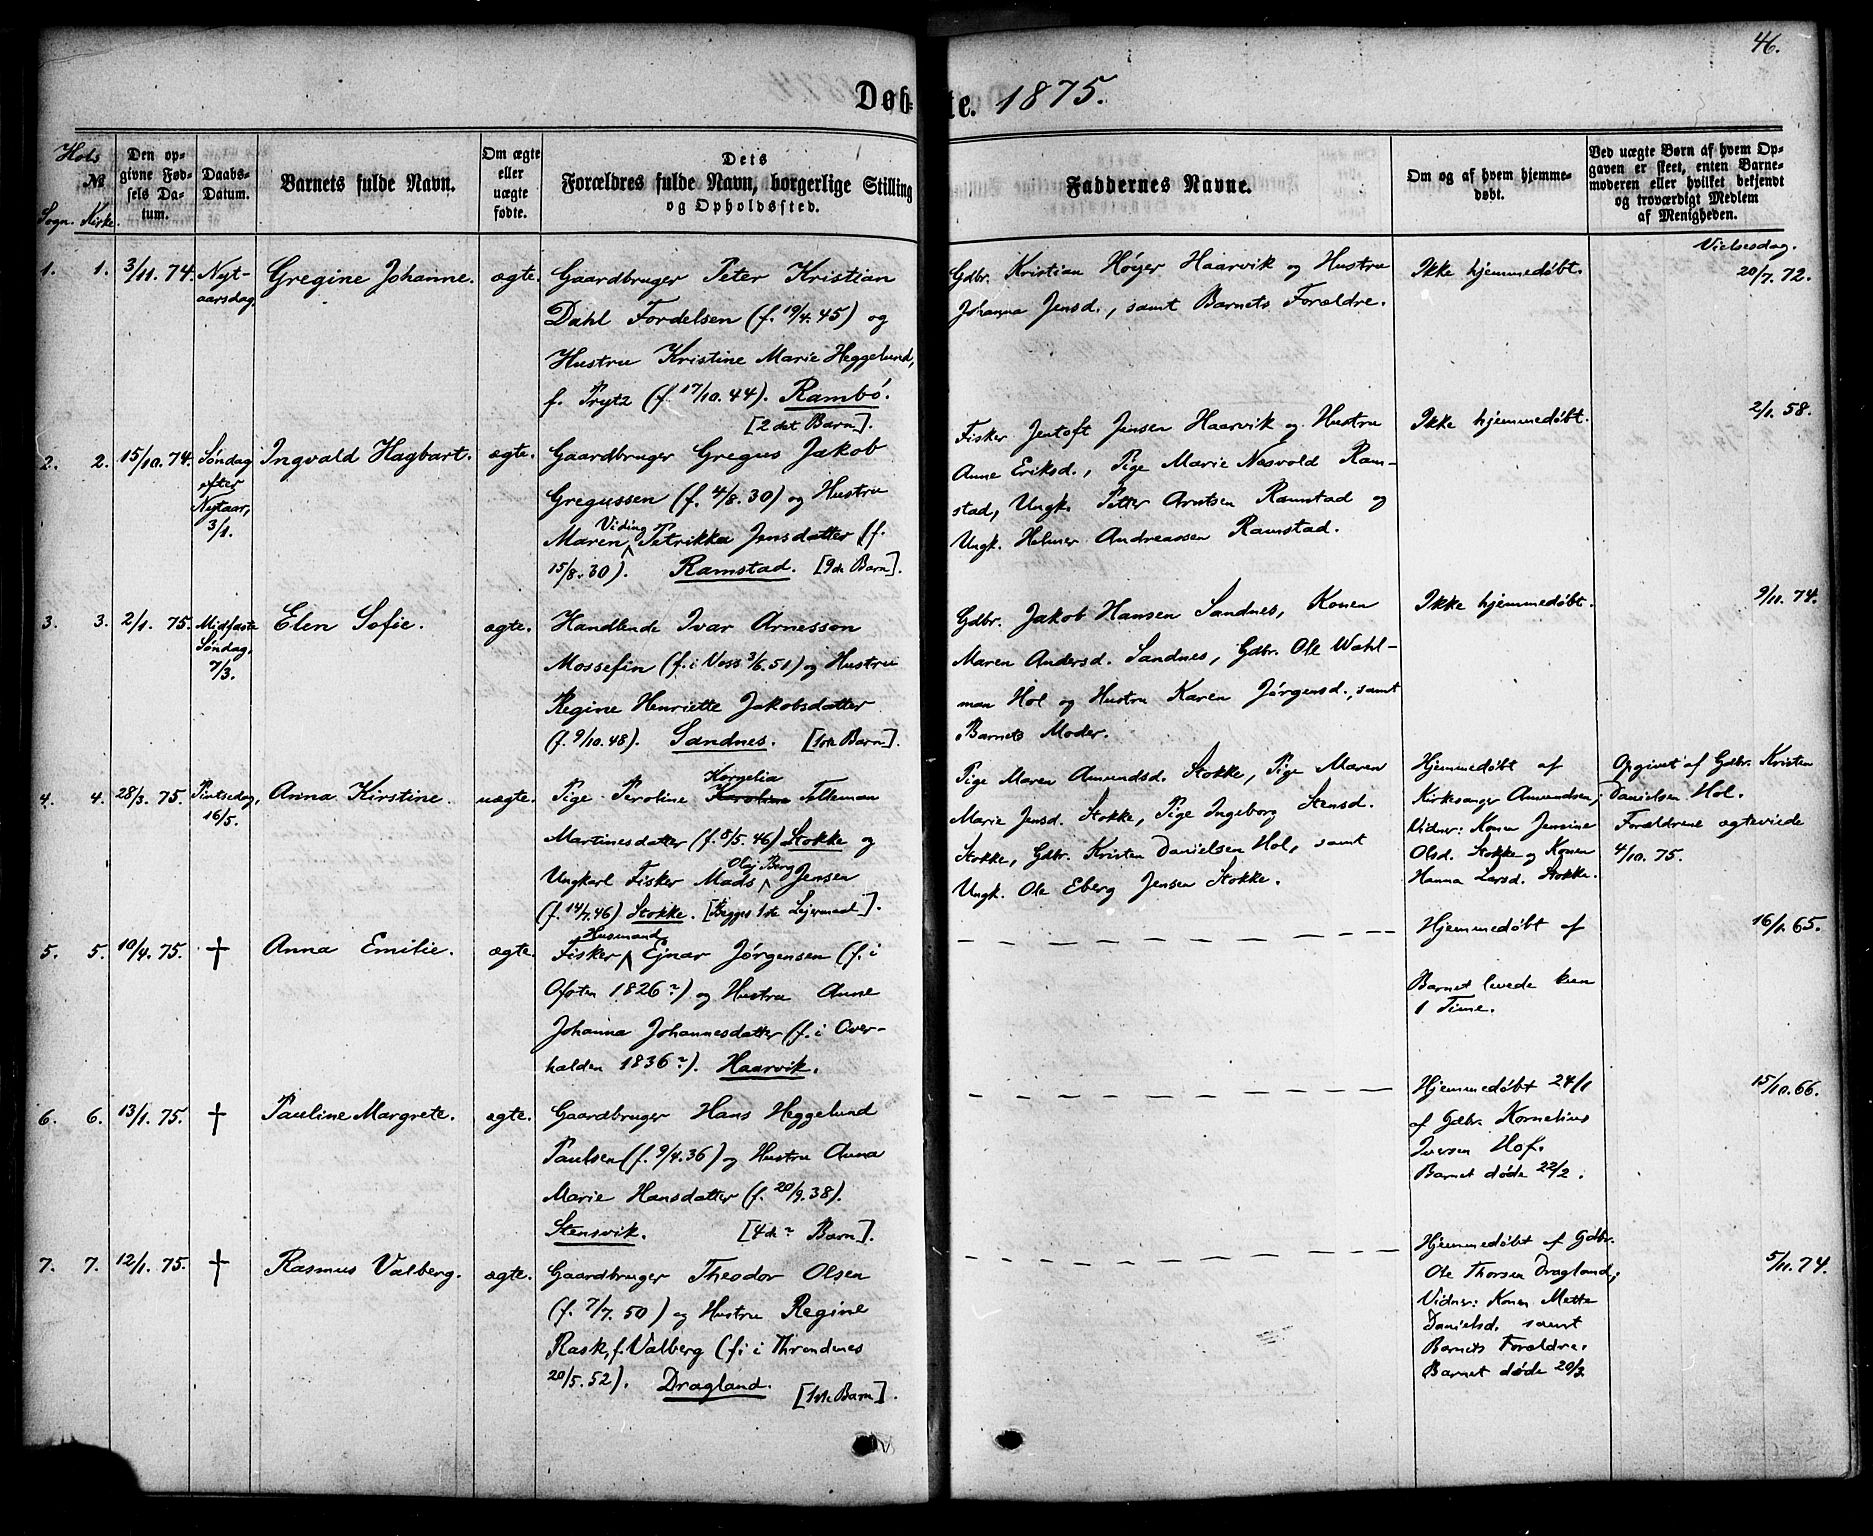 46.
Døbte. 1875.
Hols
№
Sogn. Kirke.
Den op-
givne Fød-
sels Da-
tum.
Daabs-
Datum.
Barnets fulde Navn.
Om ægte
eller
uægte
fødte.
Dets
Forældres fulde Navn, borgerlige Stilling
og Opholdssted.
Faddernes Navne.
Om og af hvem hjemme-
døbt.
Ved uægte Børn af hvem Op-
gaven er skeet, enten Barne-
moderen eller hvilket bekjendt
og troværdigt Medlem
af Menigheden.
Vielsesdag.
1. 1. 3/11. 74. Nyt-
aarsdag
Gregine Johanne. ægte.
Gaardbruger Peter Kristian
Dahl Fordelsen (f. 19/4. 45) og
Hustru Kristine Marie Heggelund,
f. Prytz (f. 17/10. 44). Rambö.
[2det Barn].
Gdbr. Kristian Höyer Haarvik og Hustru
Johanna Jensd., samt Barnets Forældre.
Ikke hjemmedøbt.
20/7. 72.
2. 2. 15/10. 74. Søndag
efter
Nytaar,
3/1.
Ingvald Hagbart. ægte.
Gaardbruger Gregus Jakob
Gregussen (f. 4/8. 30) og Hustru
Maren Viding Petrikka Jensdatter (f.
15/8. 30). Ramstad. [9de Barn].
Fisker Jentoft Jensen Haarvik og Hustru
Anne Eriksd., Pige Marie Næsvold Ram-
stad, Ungk. Petter Arntsen Ramstad og
Ungk. Helmer Andreassen Ramstad.
Ikke hjemmedøbt.
2/1. 58.
3. 3. 2/1. 75. Midfaste
Søndag,
7/3.
Elen Sofie. ægte.
Handlende Ivar Arnesson
Mossefin (f. i Voss 3/6. 51) og Hustru
Regine Henriette Jakobsdatter
(f. 9/10. 48). Sandnes. [1ste Barn].
Gdbr. Jakob Hansen Sandnes, Konen
Maren Andersd. Sandnes, Gdbr. Ole Wahl-
man Hol og Hustru Karen Jørgensd., samt
Barnets Moder.
Ikke hjemmedøbt.
9/11. 74.
4. 4. 28/3. 75. Pintsedag,
16/5.
Anna Kirstine. uægte.
Pige Peroline Karoline Kornelia Tolleman
Martinesdatter (f. 8/5. 46) Stokke og
Ungkarl Fisker Mads Olaj Berg Jensen
(f. 14/7. 46) Stokke. [Begges 1ste Lejermaal].
Pige Maren Amundsd. Stokke, Pige Maren
Marie Jensd. Stokke, Pige Ingeborg Stensd.
Stokke, Gdbr. Kristen Danielsen Hol, samt
Ungk. Ole Eberg Jensen Stokke.
Hjemmedøbt af
Kirkesanger Amundsen,
Vidner: Konen Jensine
Olsd. Stokke og Konen
Hanna Larsd. Stokke.
Opgivet af Gdbr. Kristen
Danielsen Hol.
Forældrene ægteviede
4/10. 75.
5. 5. 10/4. 75. †
Anna Emilie. ægte.
Fisker Husmand Ejnar Jørgensen (f. i
Ofoten 1826?) og Hustru Anne
Johanna Johannesdatter (f. i Over-
halden 1836?). Haarvik.
Hjemmedøbt af
Barnet levede kun
1 Time.
16/1. 65.
6. 6. 13/1. 75. †
Pauline Margrete. ægte.
Gaardbruger Hans Heggelund
Paulsen (f. 9/4. 36) og Hustru Anna
Marie Hansdatter (f. 20/9. 38).
Stensvik. [4de? Barn].
Hjemmedøbt 24/1
af Gdbr. Kornelius
Iversen Hof.
Barnet døde 22/2.
15/10. 66.
7. 7. 12/1. 75. †
Rasmus Valberg. ægte.
Gaardbruger Theodor Olsen
(f. 7/7. 50) og Hustru Regine
Rask, f. Valberg (f. i Throndenes
20/5. 52). Dragland. [1ste Barn].
Hjemmedøbt af Gdbr.
Ole Thorsen Dragland,
Vidner: Konen Mette
Danielsd. samt
Barnets Forældre.
Barnet døde 20/3
5/11. 74.